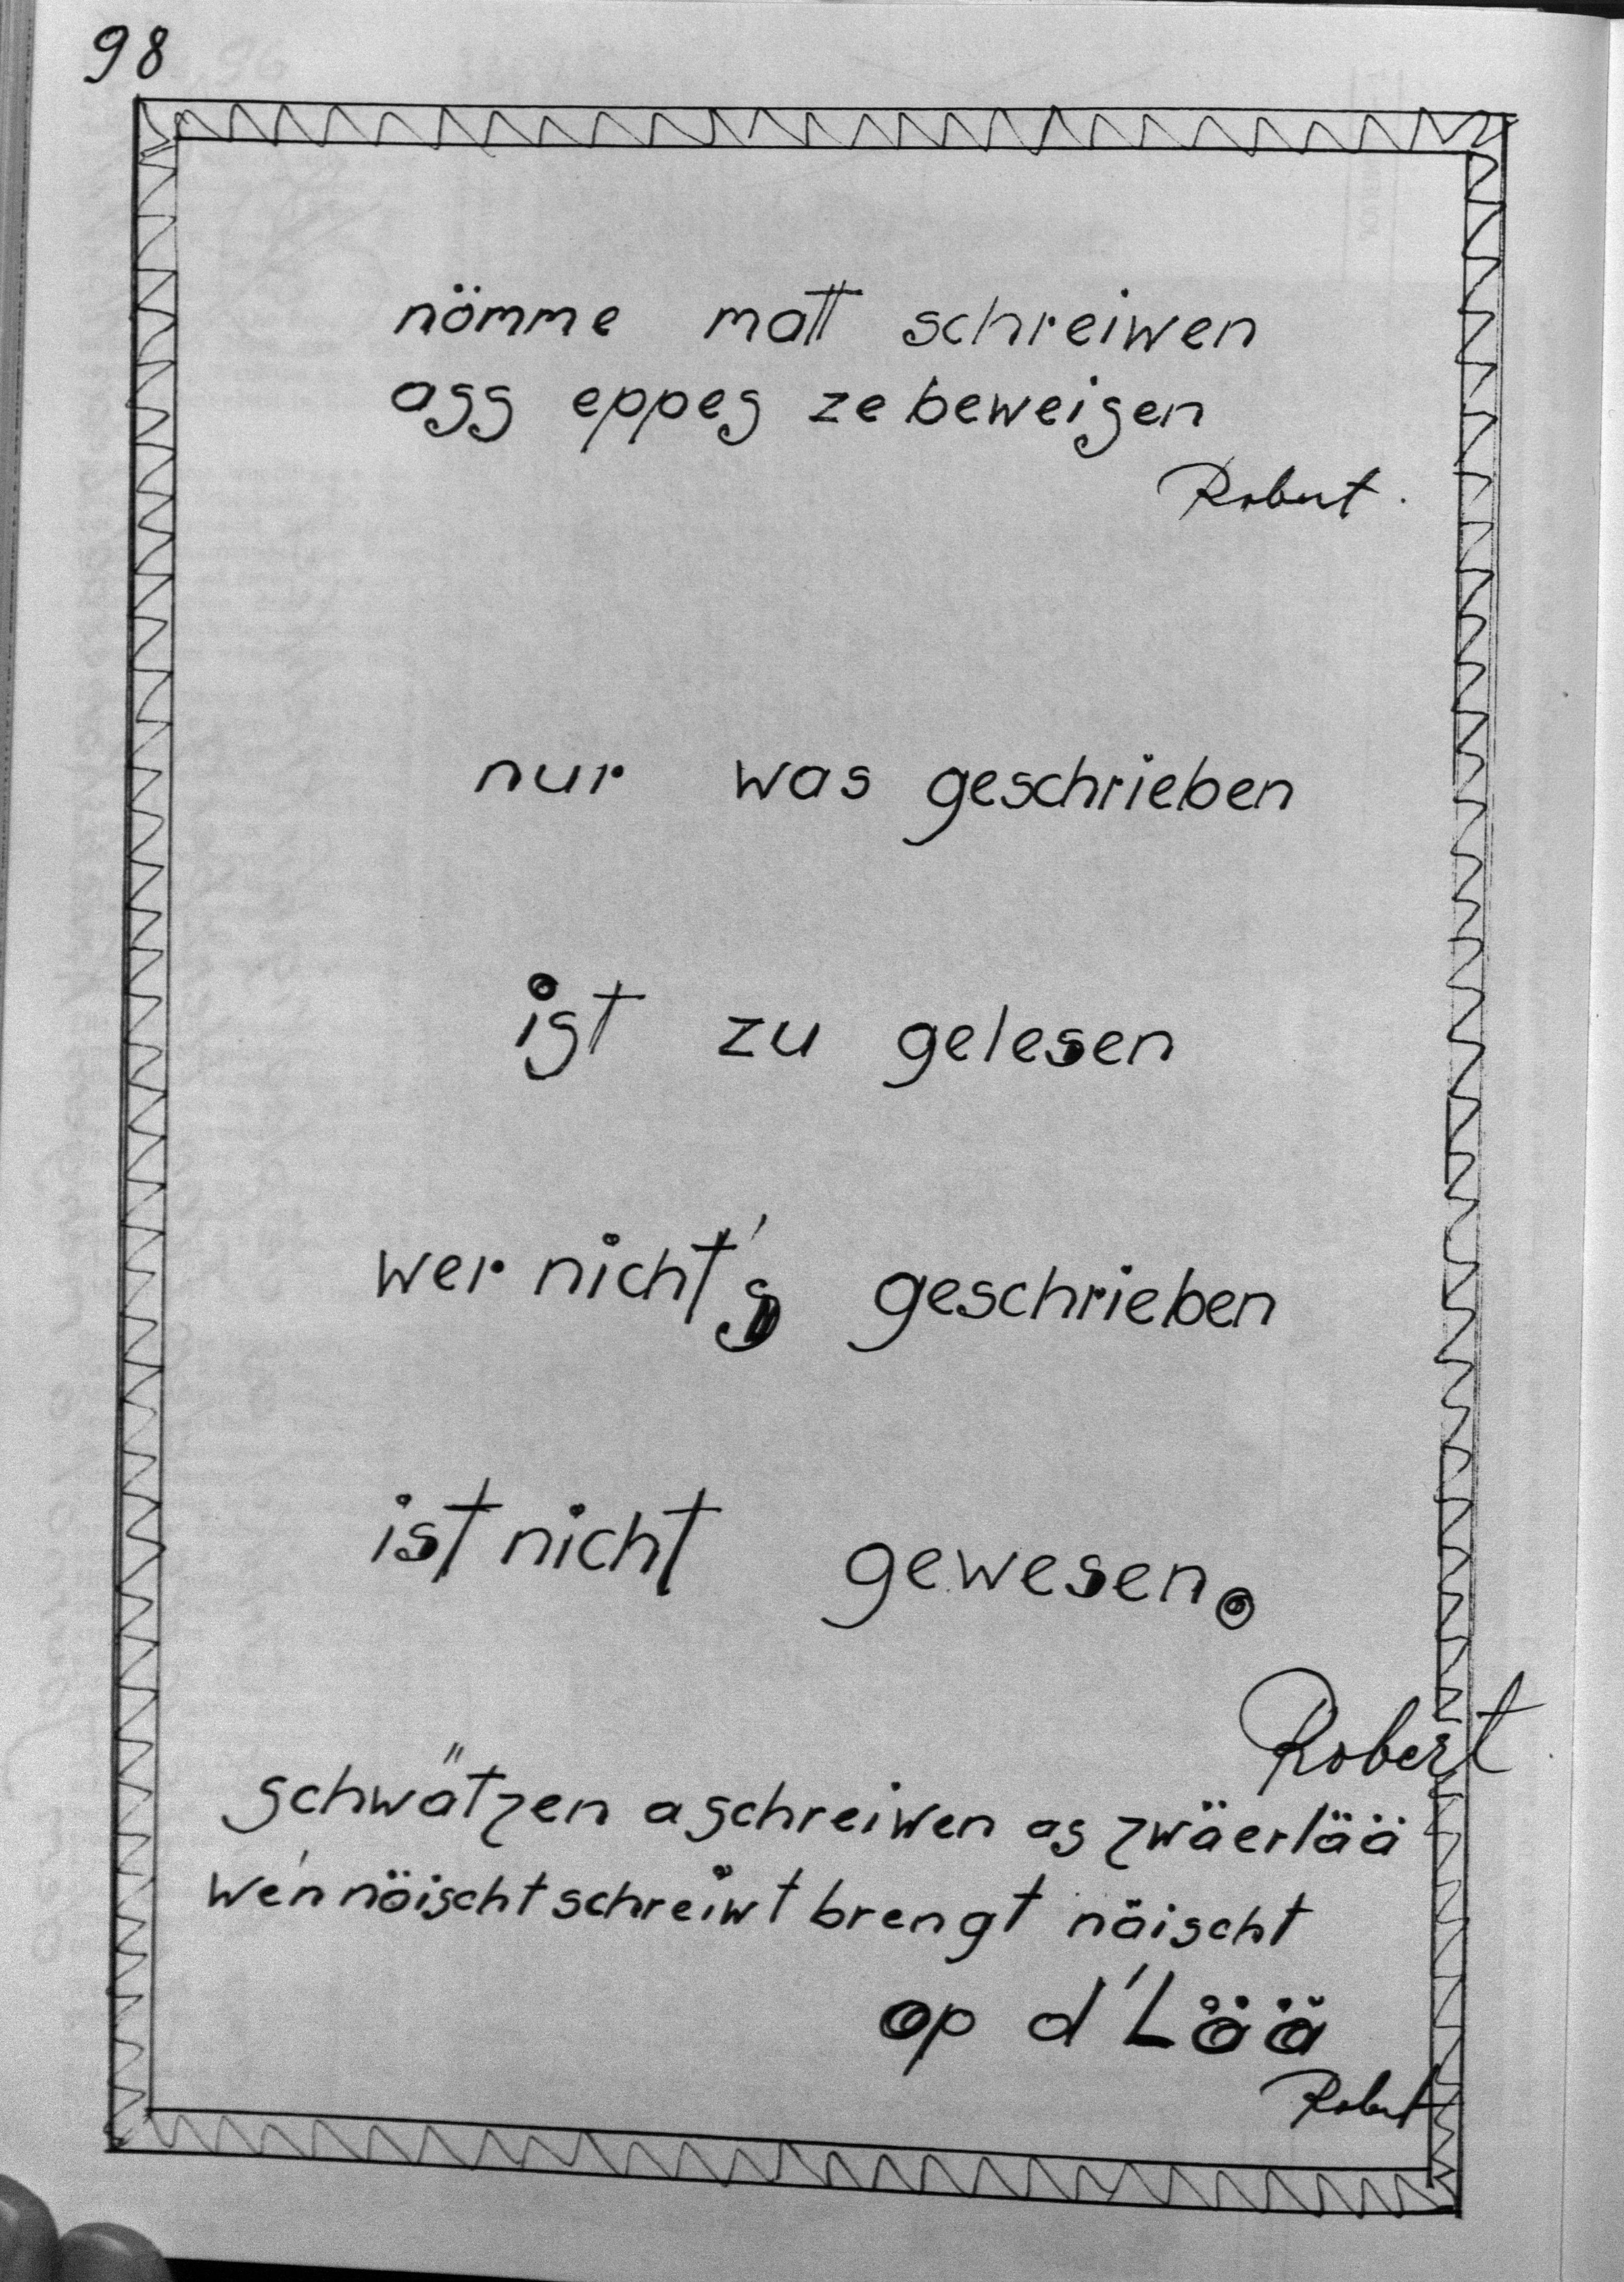 98
nömme matt schreiwen
ass eppes ze beweisen
Robert.
nur was geschrieben
ist zu gelesen
wer nicht's geschrieben
ist nicht gewesen.
Robert
schwätzen a schreiwen as zwäerlää
wén nöischt schreiwt brengt näischt
op d'Lää
Robert